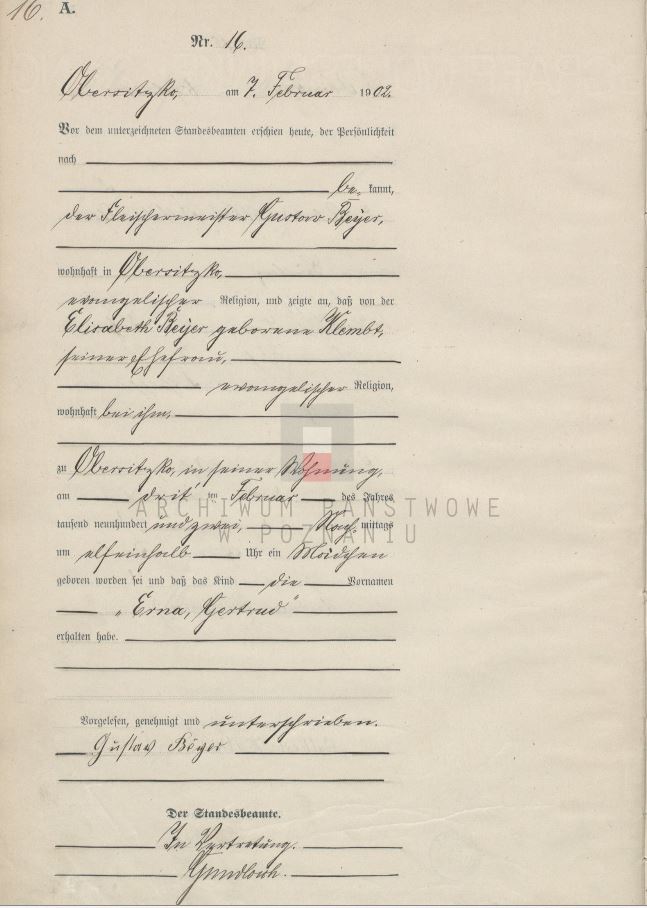 16.
A.
Nr. 16.
Obersitzko, am 7. Februar 1902.
Vor dem unterzeichneten Standesbeamten erschien heute, der Persönlichkeit
nach
be- kannt,
der Fleischermeister Gustav Beyer,
wohnhaft in Obersitzko,
evangelischer Religion, und zeigte an, daß von der
Elisabeth Beyer geborene Klembt,
seiner Ehefrau,
evangelischer Religion,
wohnhaft bei ihm,
zu Obersitzko, in seiner Wohnung,
am drit ten Februar des Jahres
tausend neunhundert und zwei, Nach- mittags
um elfeinhalb Uhr ein Mädchen
geboren worden sei und daß das Kind die Vornamen
„Erna, Gertrud"
erhalten habe.
Vorgelesen, genehmigt und unterschrieben.
Gustav Beyer
Der Standesbeamte.
In Vertretung.
ARCHIWUM PAŃSTWOWE
W POZNANIU